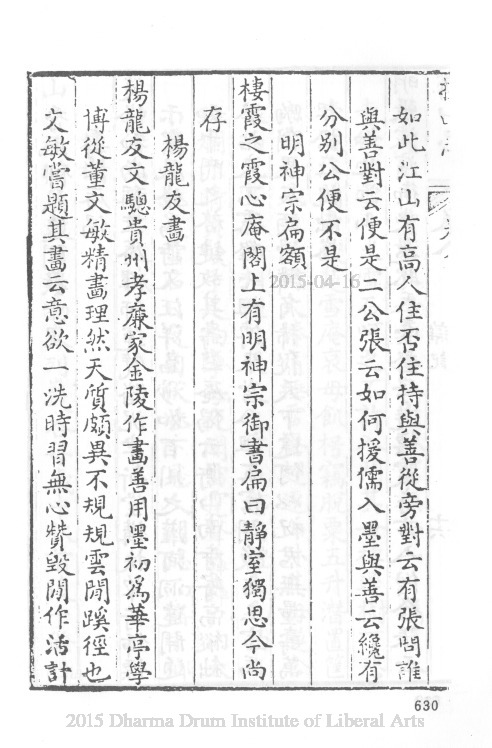 如此江山有高人住否住持與善從旁對云有張問誰
與善對云便是二公張云如何援儒入墨與善云纔有
分别公便不是
明神宗扁額
棲霞之霞心庵閣上有明神宗御書扁曰靜室獨思今尚
存
楊龍友畫
楊龍友文驄貴州孝亷家金陵作畫善用墨初爲華亭學
博從董文敏精畫理然天質頗異不規規雲間蹊徑也
文敏嘗題其畫云意欲一洗時習無心贊毀間作活計
2015-04-16
630
2015 Dharma Drum Institute of Liberal Arts